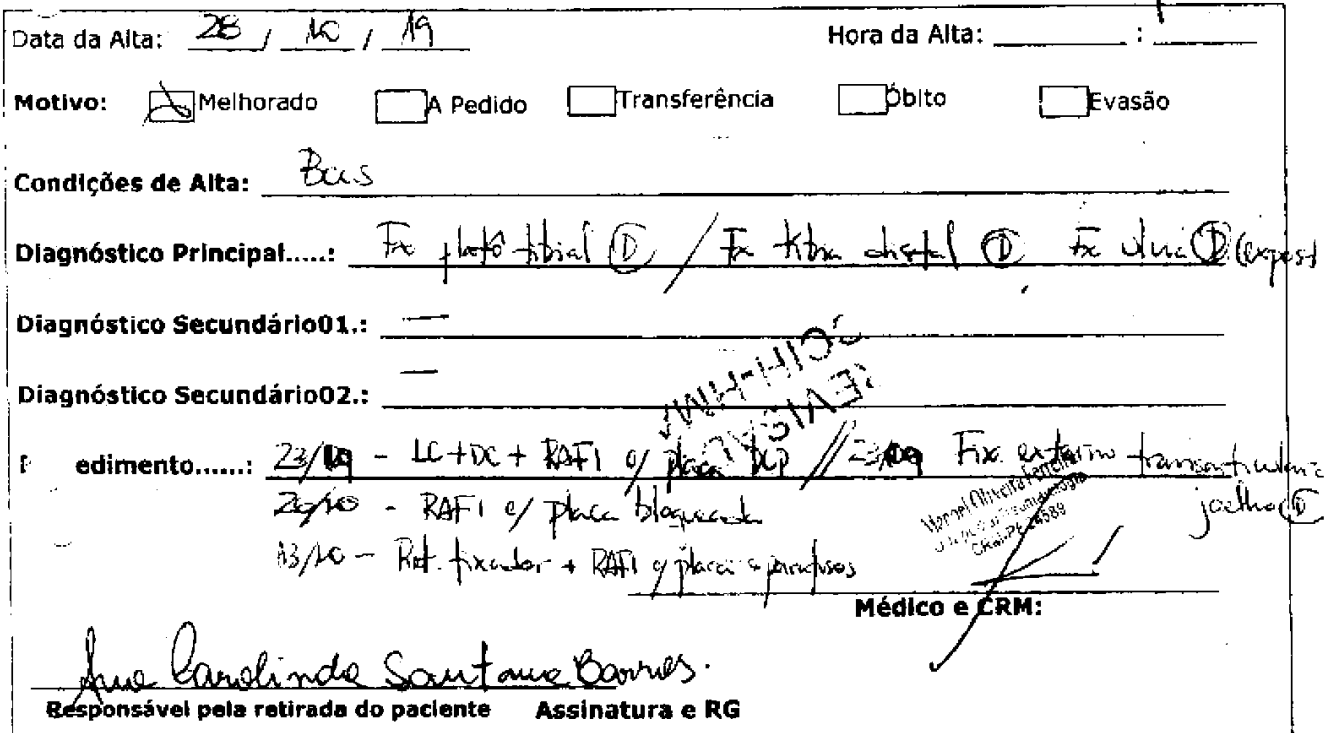 Data da Alta: 28 / 10 / 19 Hora da Alta: :
Motivo: Melhorado A Pedido Transferência Óbito Evasão
Condições de Alta: Boas
Diagnóstico Principal.....: Fx platô tibial (D) / Fx tíbia distal (D) Fx ulna (D) (expost
Diagnóstico Secundário01.: —
Diagnóstico Secundário02.: —
edimento......: 23/ - LC+DC + RAFI c/ placa DCP // 23/ Fix. externo transarticular
joelho (D)
- RAFI c/ placa bloqueada
13/10 - Ret. fixador + RAFI c/ placa e parafusos
SCIH-HMA
REVISA
Manoel Oliveira Ferreira
Médico e CRM:
Ana Carolinda Santana Barros.
Responsável pela retirada do paciente Assinatura e RG